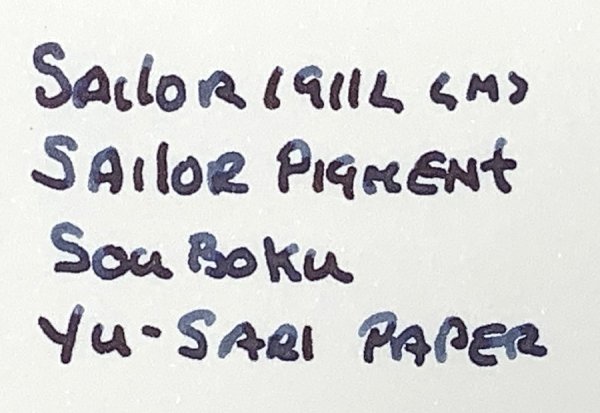 Sailor 1911L (M)
Sailor Pigment
Sou Boku
Yu-Sari Paper